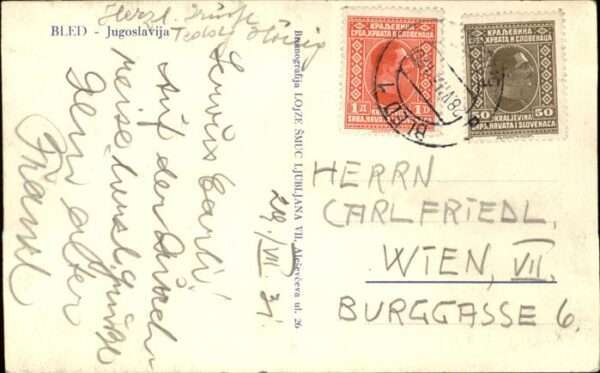 BLED - Jugoslavija
Herzl. Grüße
Servus Carli!
Auf der Durch-
reise herzl. Grüße
Dein alter
Franzl
29./VII 31.
Bromografija LOJZE ŠMUC LJUBLJANA VII, Aleševčeva ul. 26
КРАЉЕВИНА
СРБА, ХРВАТА И СЛОВЕНАЦА
1 Д
1 D
KRALJEVINA
SRBA, HRVATA I SLOVENACA
КРАЉЕВИНА
СРБА, ХРВАТА И СЛОВЕНАЦА
50
50
KRALJEVINA
SRBA, HRVATA I SLOVENACA
BLED 1
HERRN
CARL FRIEDL,
WIEN, VII.
BURGGASSE 6.